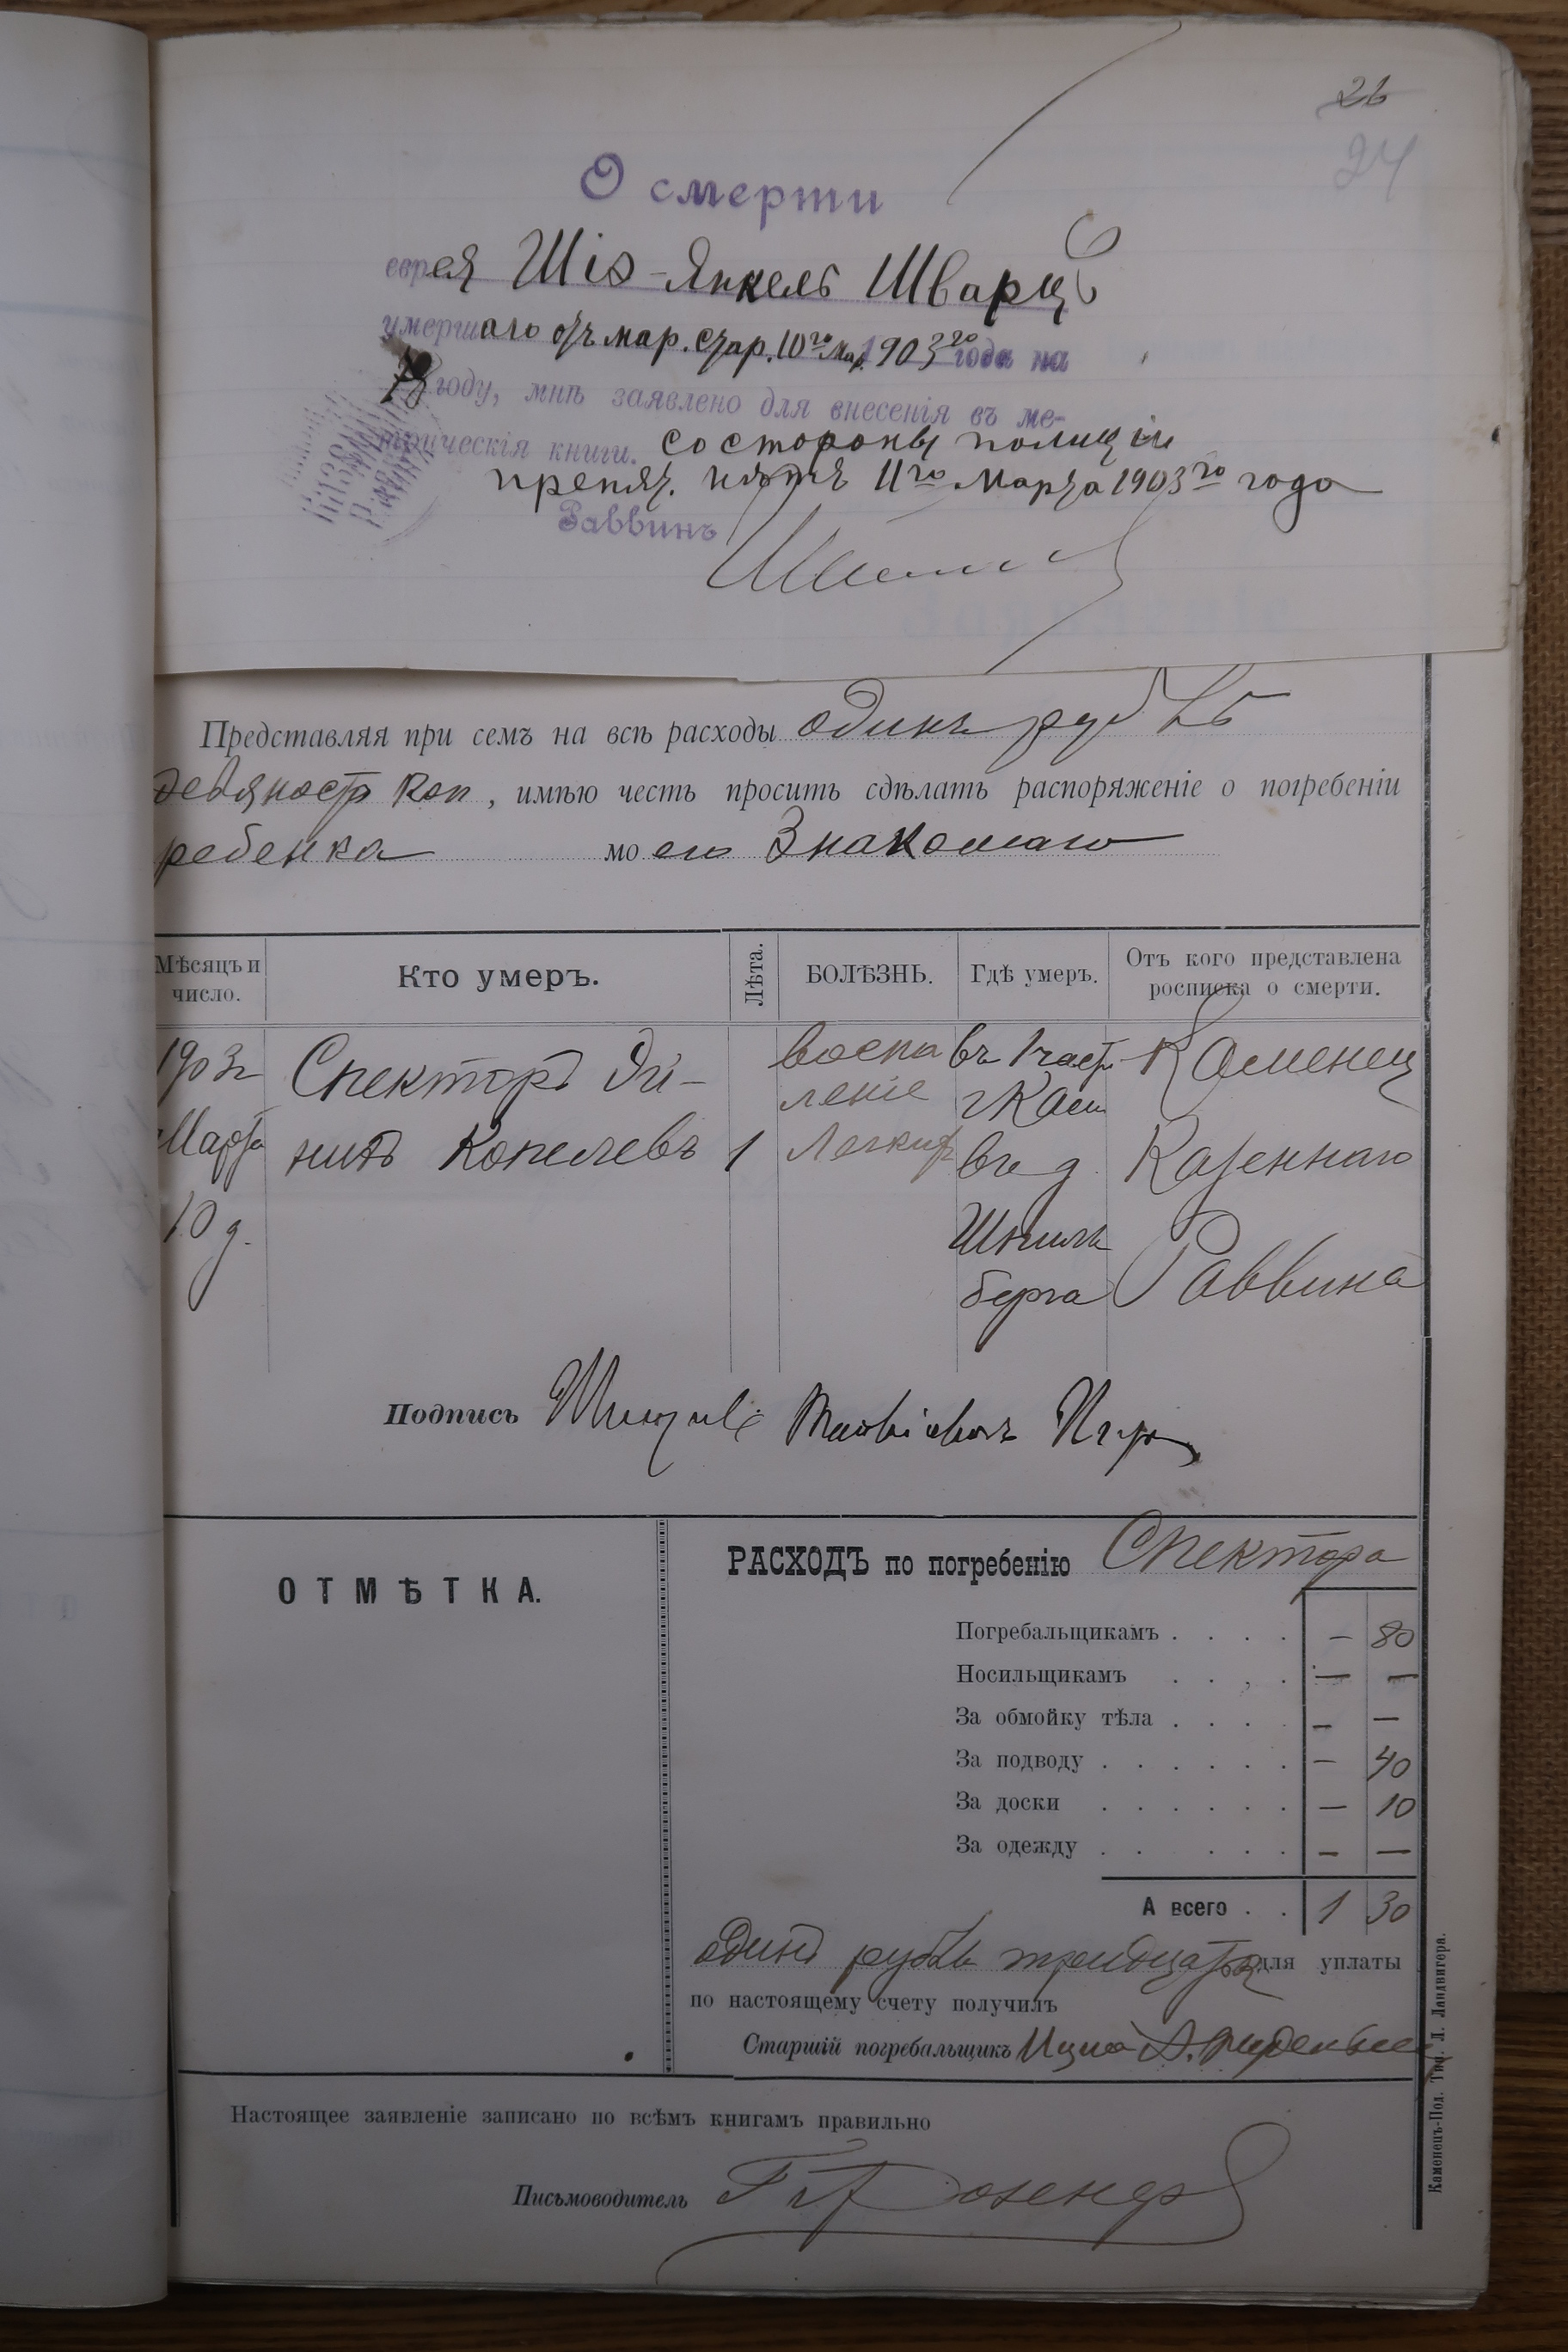 26
24
О смерти
еврея Шія-Янкель Шварцъ
умершаго отъ мар. стар. 10го Мар. 1903го года на
78 году, мнѣ заявлено для внесенія въ ме-
трическія книги. со стороны полиціи
препят. нѣтъ 11го Марта 1903го года
Раввинъ
Представляя при семъ на всѣ расходы одинъ рубль
девяносто коп, имѣю честь просить сдѣлать распоряженіе о погребеніи
ребенка моего Знакомаго
Мѣсяцъ и число. Кто умеръ. Лѣта. БОЛѢЗНЬ. Гдѣ умеръ. Отъ кого представлена росписка о смерти.
1903г Спекторъ воспа въ 1 част. Каменец
леніе г Кам
Марта Копелевъ 1 Легкихъ въ д. Казеннаго
10 д. Шпиль
берга Раввина
Подпись
ОТМѢТКА.
РАСХОДЪ по погребенію Спектора
Погребальщикамъ . . . . — 80
Носильщикамъ . . . . — —
За обмойку тѣла . . . . — —
За подводу . . . . . . — 40
За доски . . . . . . — 10
За одежду . . . . . . — —
А всего . . 1 30
одинъ рубль тридцать для уплаты
по настоящему счету получилъ
Старшій погребальщикъ
Настоящее заявленіе записано по всѣмъ книгамъ правильно
Письмоводитель
Каменецъ-Под. Тип. Л. Ландвигера.